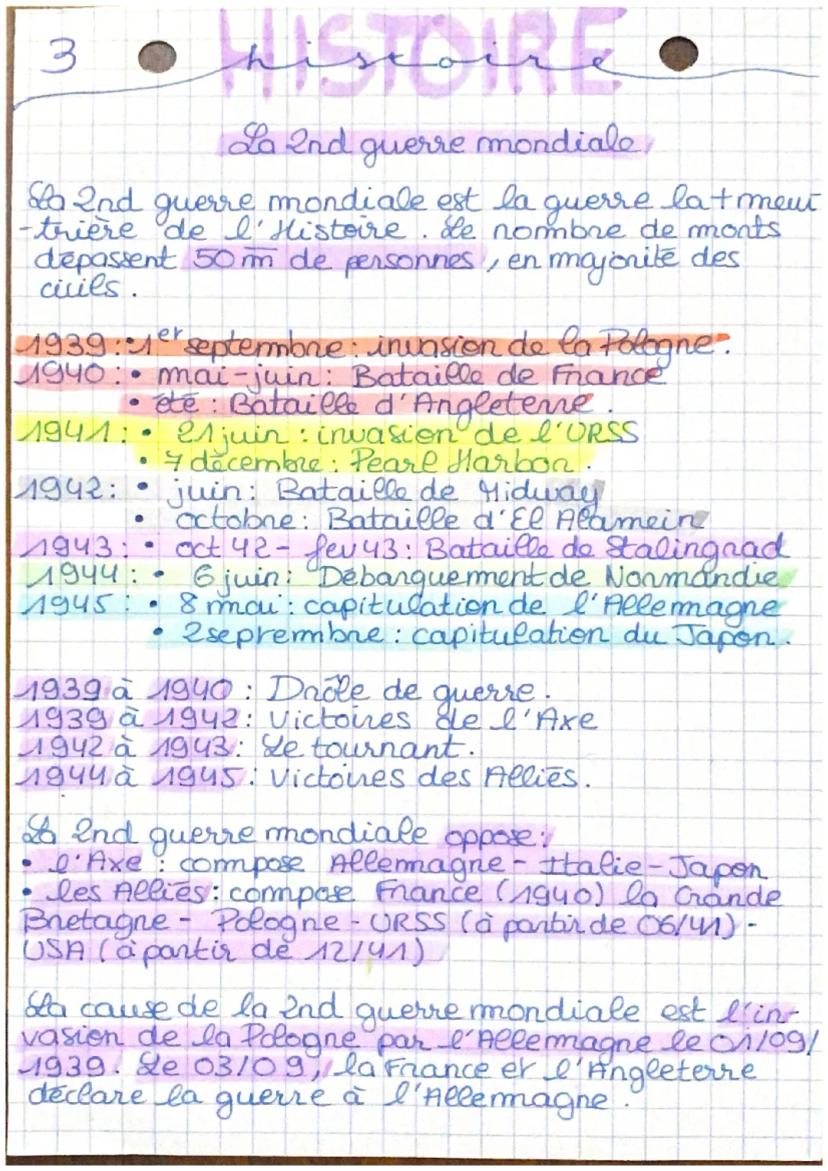 3
HISTOIRE
histoire
La 2nd guerre mondiale
La 2nd guerre mondiale est la guerre la + meur
-trière de l'Histoire. Le nombre de morts
dépassent 50 m de personnes, en majorité des
civils.
1939 : • 1er septembre : invasion de la Pologne.
1940 : • mai-juin : Bataille de France
• été : Bataille d'Angleterre.
1941 : • 21 juin : invasion de l'URSS
• 7 décembre : Pearl Harbor.
1942 : • juin : Bataille de Midway
• octobre : Bataille d'El Alamein
1943 : • oct 42 - fev 43 : Bataille de Stalingrad
1944 : • 6 juin : Débarquement de Normandie
1945 : • 8 mai : capitulation de l'Allemagne
• 2 seprembre : capitulation du Japon.
1939 à 1940 : Drôle de guerre.
1939 à 1942 : Victoires de l'Axe
1942 à 1943 : Le tournant.
1944 à 1945 : Victoires des Alliés.
La 2nd guerre mondiale oppose :
• l'Axe : compose Allemagne - Italie - Japon
• les Alliés : compose France (1940) la Grande
Bretagne - Pologne - URSS (à partir de 06/41) -
USA (à partir de 12/41)
La cause de la 2nd guerre mondiale est l'in-
vasion de la Pologne par l'Allemagne le 01/09/
1939. Le 03/09, la France et l'Angleterre
déclare la guerre à l'Allemagne.